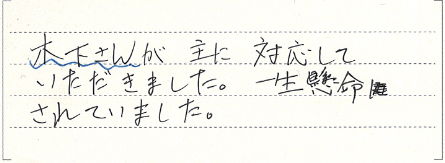 木下さんが 主に 対応して
いただきました。 一生懸命
されていました。